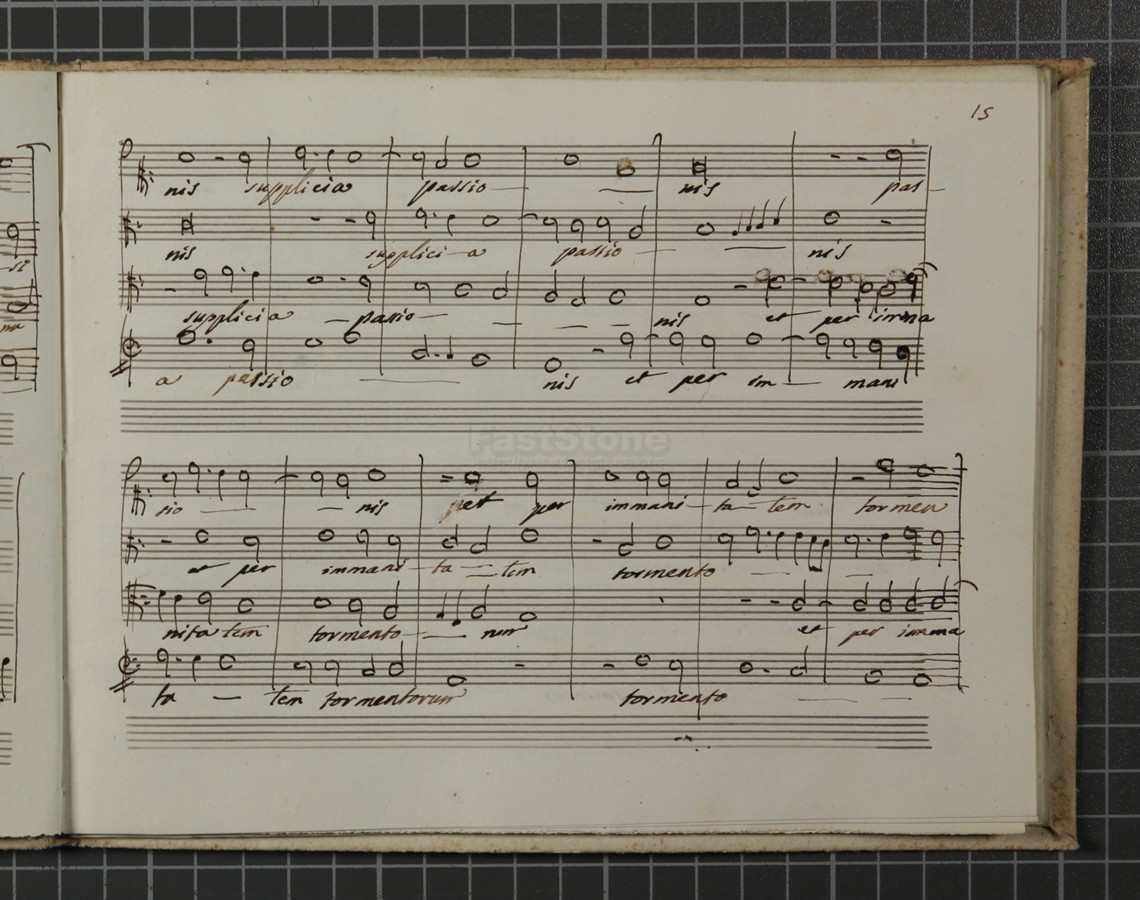 15
nis supplicia passio nis pas
nis supplici-a passio nis
supplicia passio nis et per imma
a passio nis et per im mani
FastStone
sio nis et per immani ta tem tormen
et per immani ta tem tormento
nita tem tormento rum et per imma
ta tem tormentorum tormento